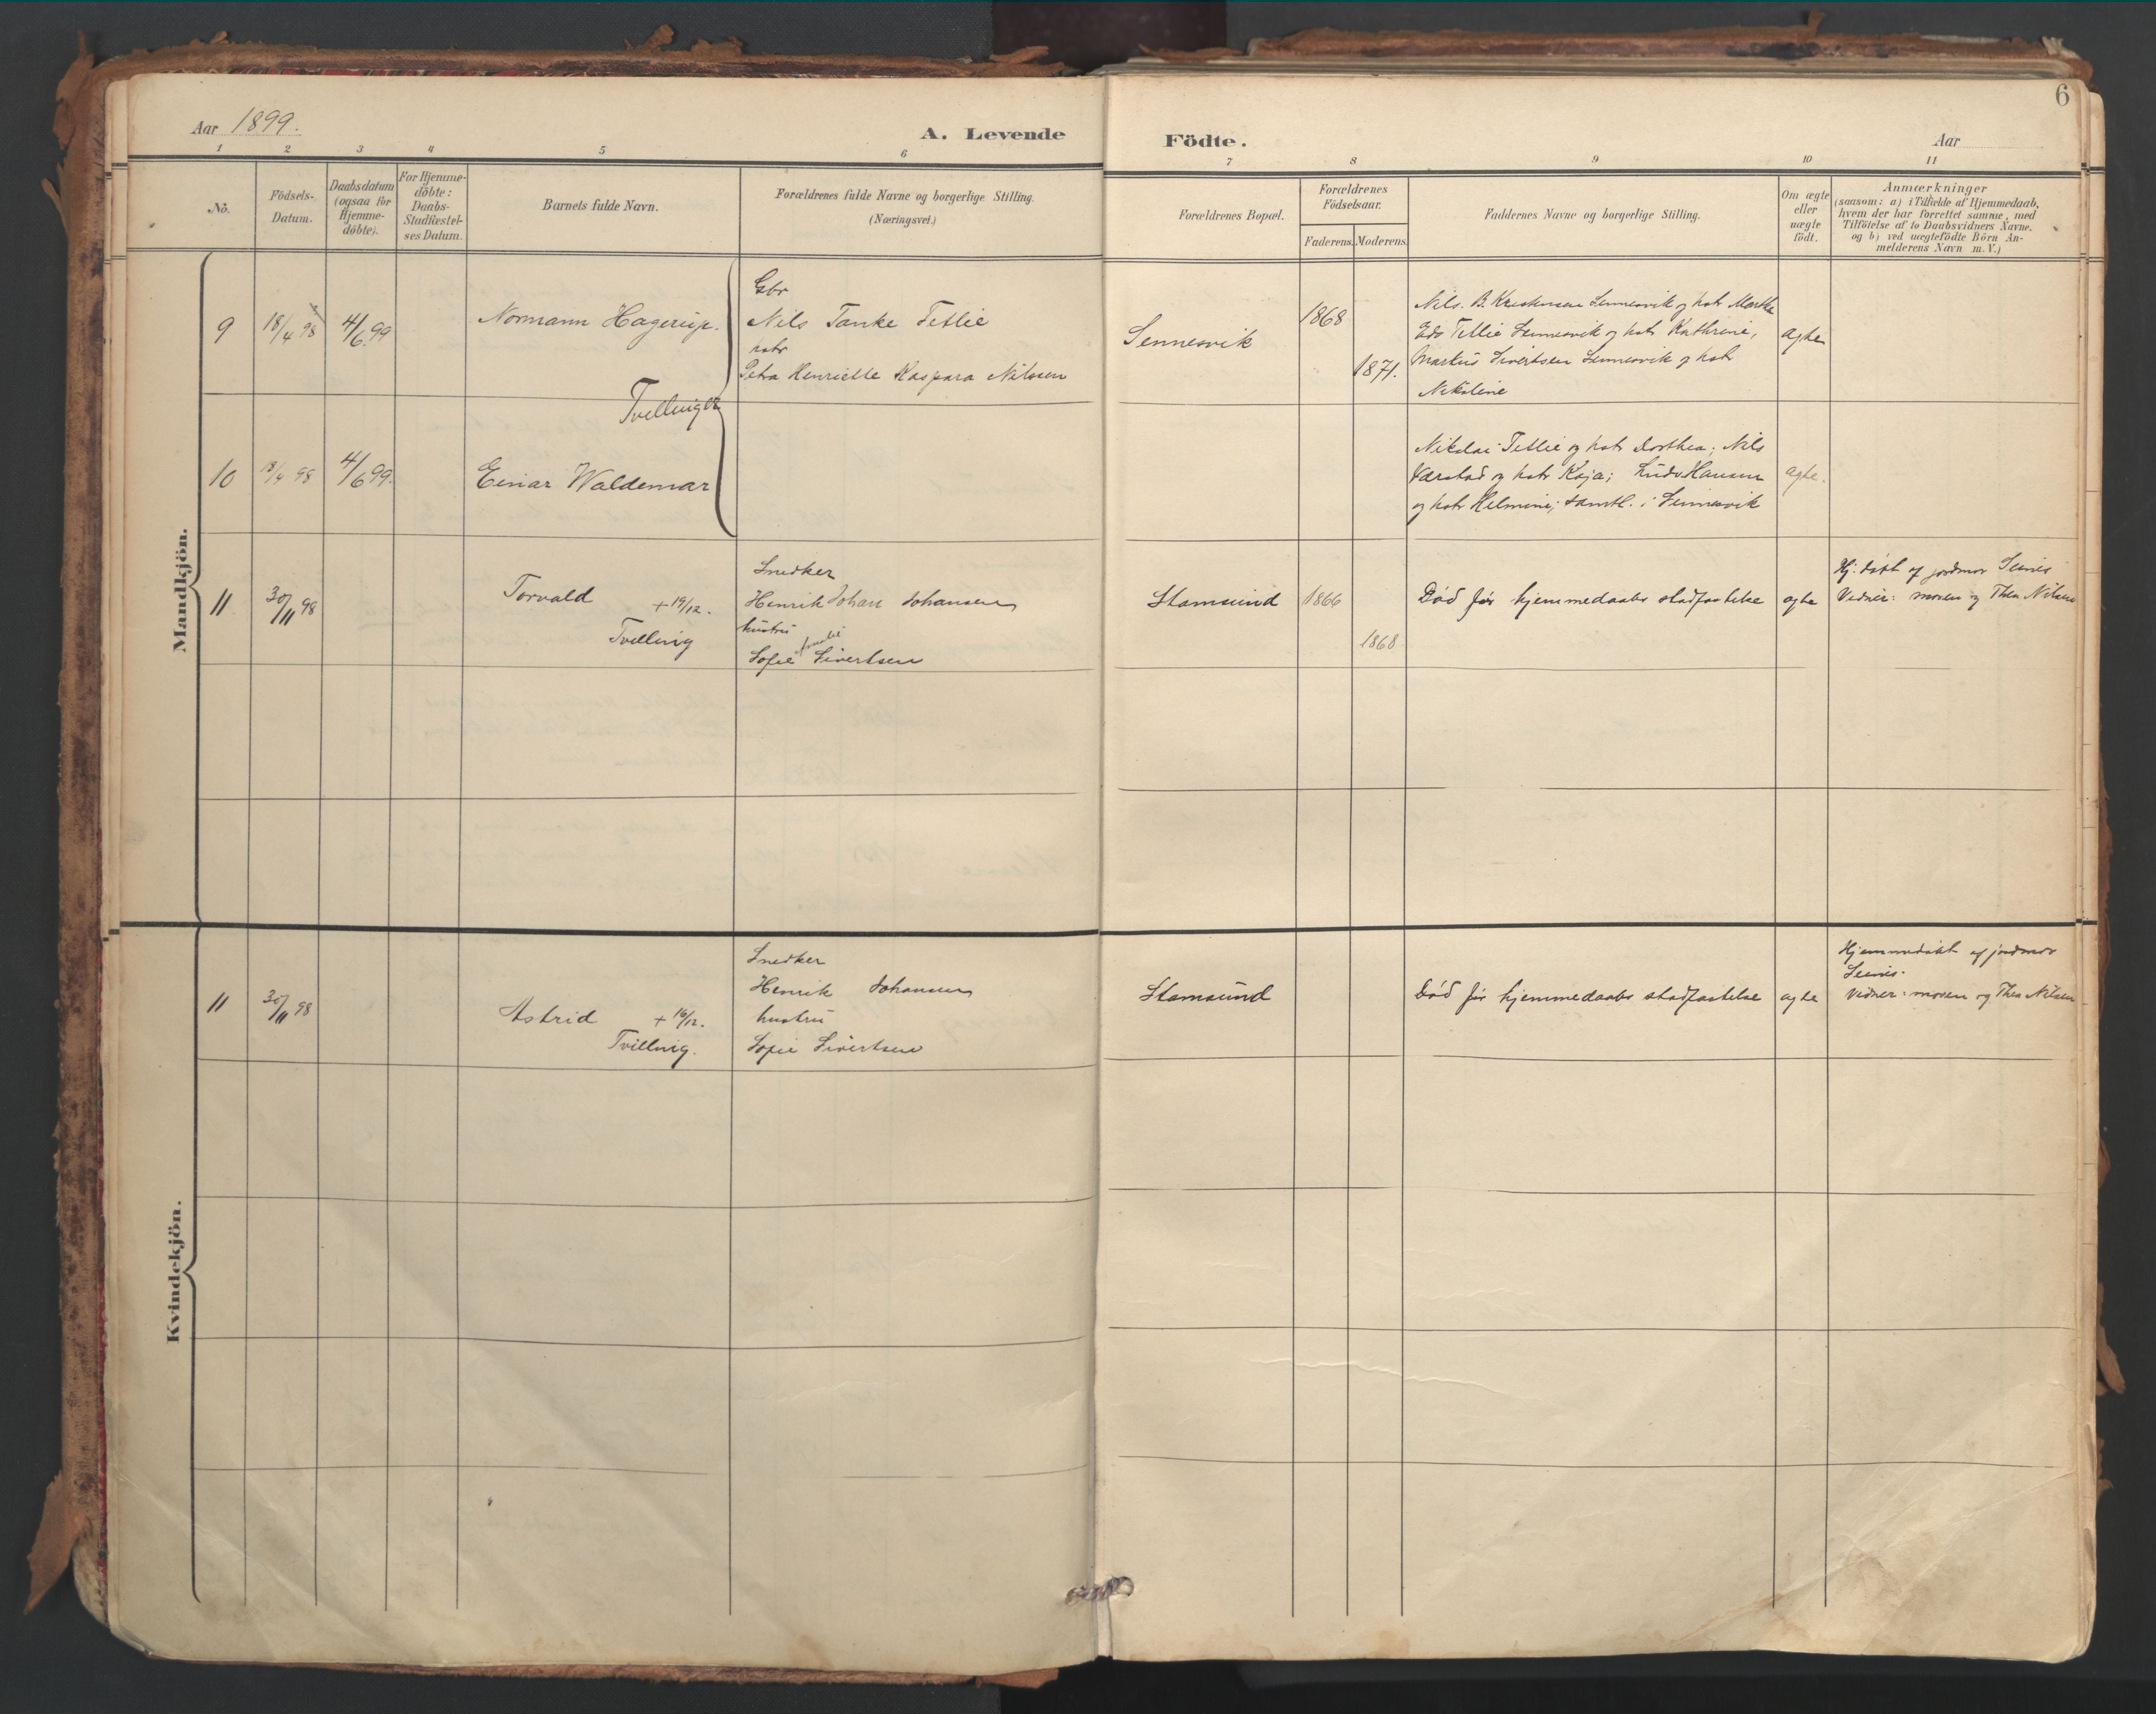 6
Aar 1899.
A. Levende Födte.
Aar
1 2 3 4 5 6 7 8 9 10 11
No.
Födsels-
Datum.
Daabsdatum
(ogsaa for
Hjemme-
döbte).
For Hjemme-
döbte:
Daabs-
Stadfæstel-
ses Datum.
Barnets fulde Navn.
Forældrenes fulde Navne og borgerlige Stilling.
(Næringsvei.)
Forældrenes Bopæl.
Forældrenes
Födselsaar.
Faderens. Moderens.
Faddernes Navne og borgerlige Stilling.
Om ægte
eller
uægte
födt.
Anmærkninger
(saasom: a) i Tilfælde af Hjemmedaab,
hvem der har forrettet samme, med
Tilföielse af to Daabsvidners Navne.
og b) ved uægtefödte Börn An-
melderens Navn m. V.)
Mandkjön.
9
18/4 98
4/6 99
Normann Hagerup.
Tvillinger
Gbr
Nils Tanke Tetlie
hstr
Petra Henriette Kaspara Nilssen
Sennesvik
1868
1871.
Nils. B. Kristensen Sennesvik og hstr Martha
Edv Tetlie Sennesvik og hstr Kathrine,
Markus Sivertsen Sennesvik og hstr
Nikoline
ægte
10
18/4 98
4/6 99.
Einar Waldemar
Nikolai Tetlie og hstr Dorthea; Nils
og hstr Kaja; Ludv Hansen
og hstr Helmine; samtl. i Sennesvik
ægte.
11
30/11 98
Torvald +19/12.
Tvilling
Snedker
Henrik Johan Johansen
hustru
Sofie Sivertsen
Stamsund
1866
1868
Död för hjemmedaabs stadfæstelse
ægte
Hj. döbt af jordmor
Vidner: moren og Thea Nilsen
Kvindekjön.
11
30/11 98
Astrid +16/12.
Tvilling.
Snedker
Henrik Johansen
hustru
Sofie Sivertsen
Stamsund
Död för hjemmedaabs stadfæstelse
ægte
Hjemmedöbt af jordmor
Vidner: moren og Thea Nilsen